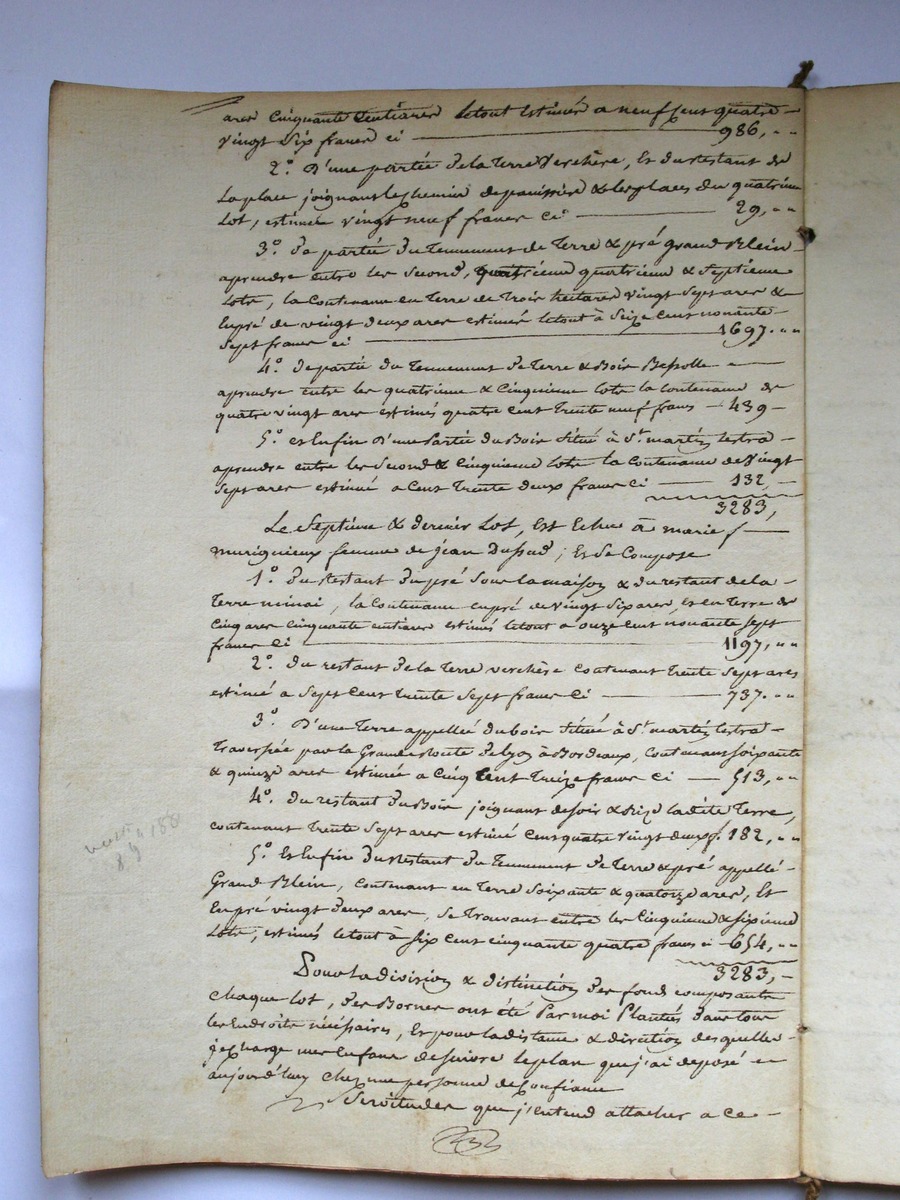 ares Cinquante Centiares letout Estimés a neuf Cens quatre-
vingt Six francs ci 986, " "
2.° D'une partie de la Terre Verchère, Et du Restant de
La place joignant le chemin de panissière & les places du quatrieme
Lot, estimée vingt neuf francs Ci 29, " "
3.° De partie du Tennement de Terre & pré Grand Plein-
aprendre entre les Second, quatrieme & Septieme
Lots, la Contenance en Terre de Trois hectares vingt Sept ares &
En pré de vingt deux ares estimés letout à Seize Cent nonante
Sept francs ci 1697. " "
4.° de partie du Tennement de Terre & Bois Bessolle
aprendre entre les quatrieme & Cinquieme lots la Contenance de
quatre vingt ares estimés quatre Cent Trente neuf francs - 439 -
5.° et Enfin D'une Partie du Bois Situé à St. martin lestra -
aprendre entre les Second & Cinquieme Lots la Contenance de Vingt
Sept ares estimée a Cent Trente Deux francs Ci 132, -
3283,
Le Septieme & dernier Lot, Est Echu à marie f
muriguieux femme de jean Dussud, ; Et Se Compose
1.° Du Restant Du pré Sous la maison & du restant de la -
Terre , la Contenance en pré de vingt Six ares, Et en Terre de
Cinq ares Cinquante Centiares estimés letout a onze Cent nonante Sept
francs Ci 1197, " "
2.° du restant de la Terre verchère contenant Trente Sept ares
estimé a Sept Cent Trente Sept francs Ci 737. " "
3.° D'une Terre appellée du bois Située à St. martin lestra -
Traversée par la Grande Route de Lyon à Bordeaux, Contenant Soixante
& quinze ares estimée a Cinq Cent Treize francs Ci 513, " "
4.° du restant du Bois joignant de Soir & Bize ladite Terre,
contenant Trente Sept ares estimé Cent quatre vingt deux f. 182, " "
5.° Et Enfin Du Restant du Tennement de Terre & pré appellé -
Grand Plein, Contenant en Terre Soixante & quatorze ares, Et
En pré vingt deux ares, Se Trouvant entre les Cinquieme & Sixieme
Lots, estimés letout à Six Cent cinquante quatre francs ci - 654, " "
3283, -
Pour la division & distinction Des fonds composants
Chaque lot, Des Bornes ont été Par moi Plantés Dans tous
les Endroits nécessaires, Et pour la distance & direction desquelles
je Charge mes Enfans de Suivre le plan que j'ai déposé -
aujourd'huy chez une personne de Confiance
Servitudes que j'entend attacher a ce -